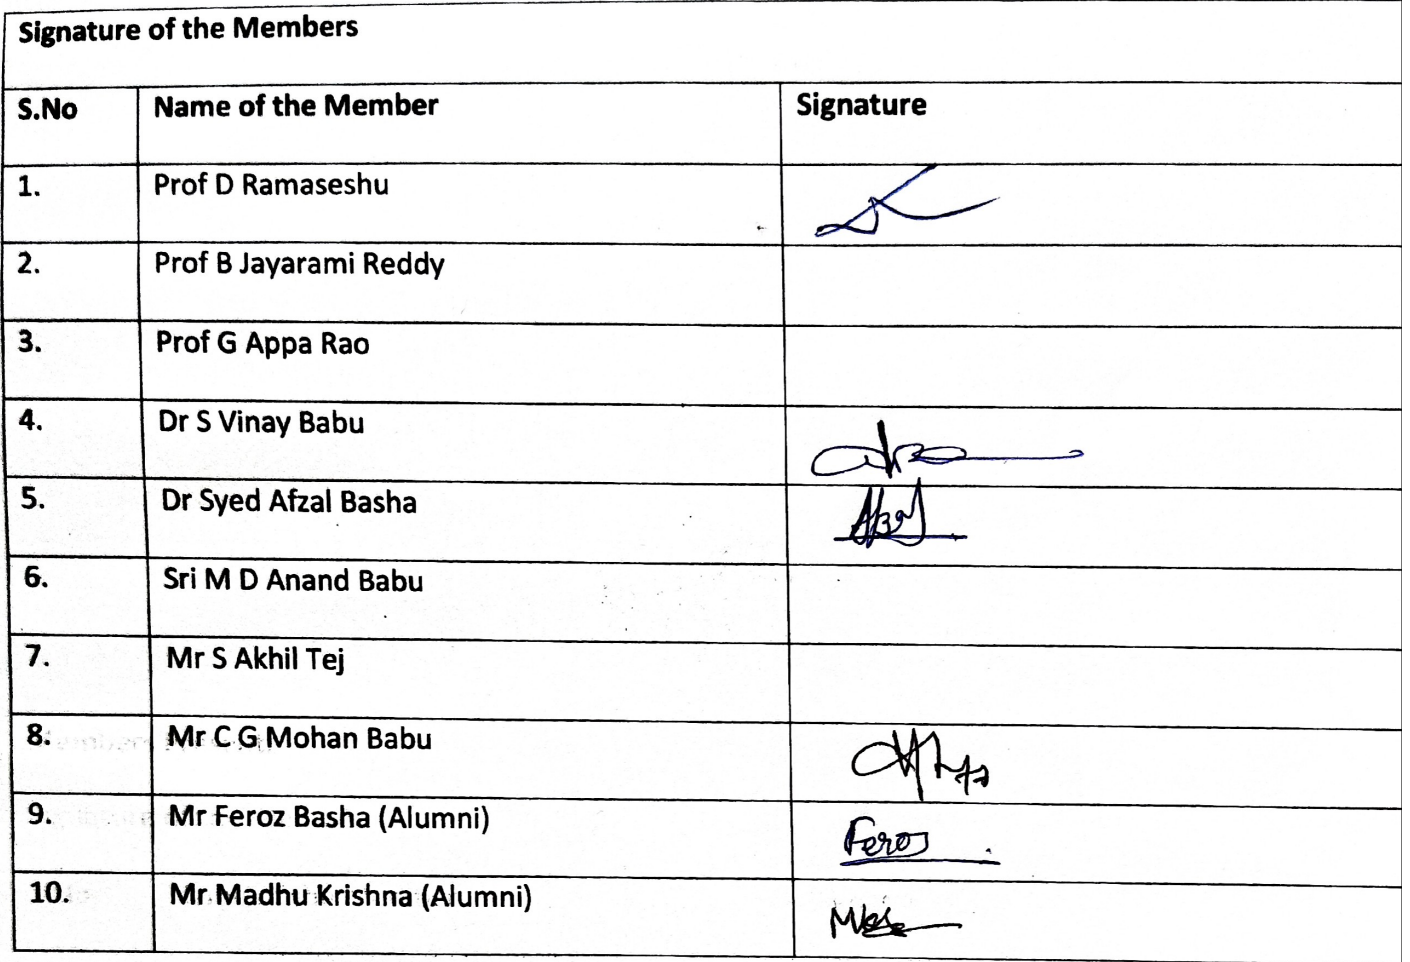 Signature of the Members
S.No Name of the Member Signature
1. Prof D Ramaseshu
2. Prof B Jayarami Reddy
3. Prof G Appa Rao
4. Dr S Vinay Babu
5. Dr Syed Afzal Basha
6. Sri M D Anand Babu
7. Mr S Akhil Tej
8. Mr C G Mohan Babu
9. Mr Feroz Basha (Alumni) Feroz
10. Mr Madhu Krishna (Alumni)